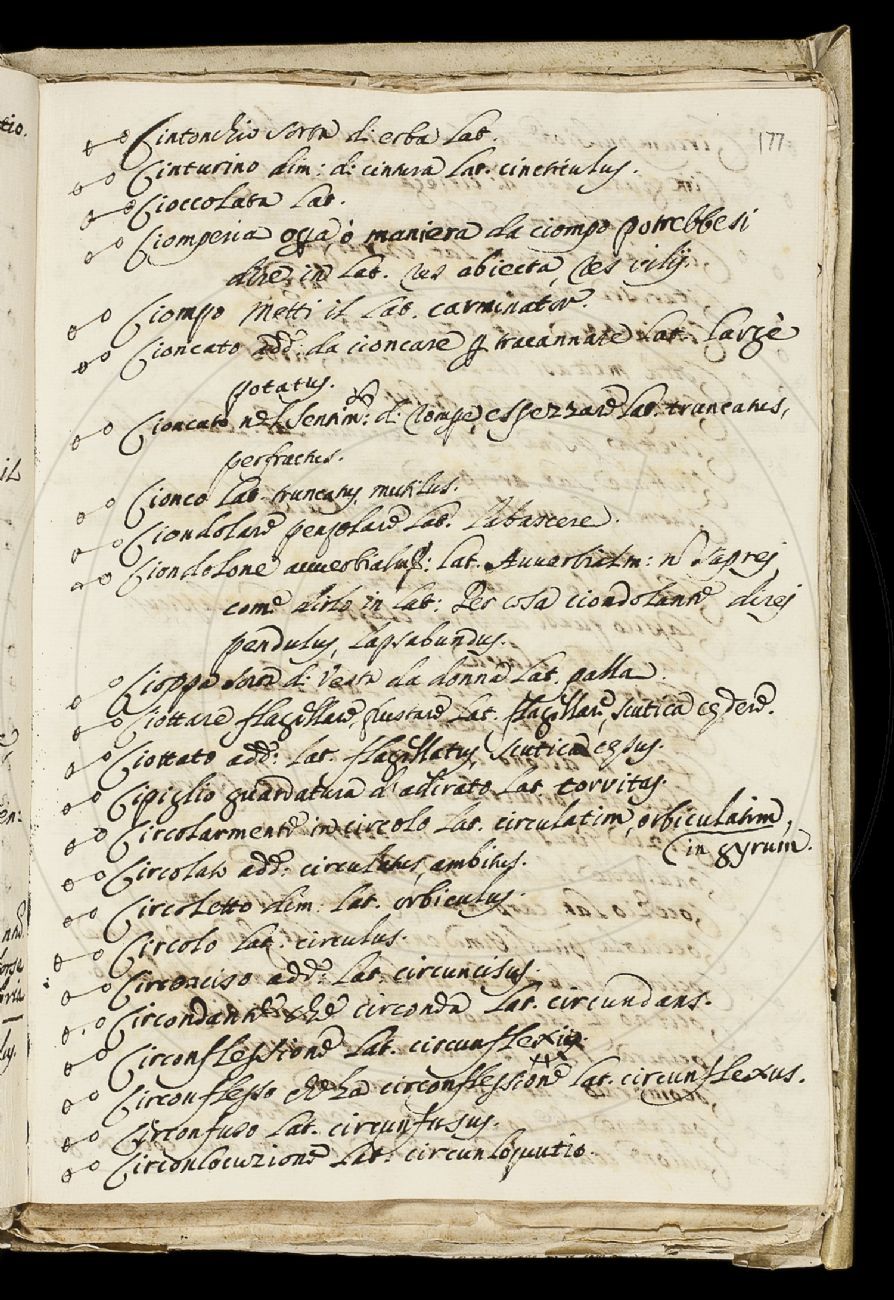 177
Cintonchio sorta di erba Lat.
Cinturino dim: di cintura Lat. cinctriulus.
Cioccolata Lat.
Ciomperia o maniera da ciompo potrebbesi
dire in Lat. res abiecta, res vilis
Ciompo Metti il Lat. carminator.
Cioncato add: da cioncare p tracannare Lat. Largè
potatus.
Cioncato nel sentim: di romp e spezzare Lat. truncatus,
perfractus.
Cionco Lat. truncatus mutilus.
Ciondolare penzolare Lat. Labascere.
Ciondolone Lat. Avverbialm: n saprej
come dirlo in Lat: Per cosa ciondolante direj
pendulus, lapsabundus.
Cioppa sorta di Veste da donna Lat. palla.
Ciottare flagellare, frustare Lat. flagellare, scutica cędere.
Ciottato add: Lat. flagellatus scutica cęsus.
Cipiglio guardatura d'adirato Lat. torvitas.
Circolarmente in circolo Lat. circulatim, orbiculatim,
in gyrum.
Circolato add: circulatus, ambitus.
Circoletto dim: Lat. orbiculus.
Circolo Lat. circulus.
Circonciso add: Lat. circuncisus.
Circondante che circonda Lat. circundans.
Circonflessione Lat. circunflexio
Circonflesso ch'ha circonflessione Lat. circunflexus.
Circonfuso Lat. circunfusus.
Circonlocuzione Lat: circunloquutio.
tio.
il